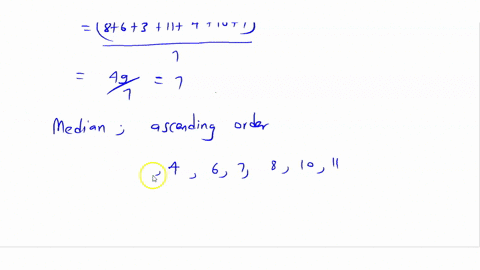 = (8+6+3+11+4+10+7)
7
= 49/7 = 7
Median ; ascending order
, 4 , 6, 7, 8, 10, 11